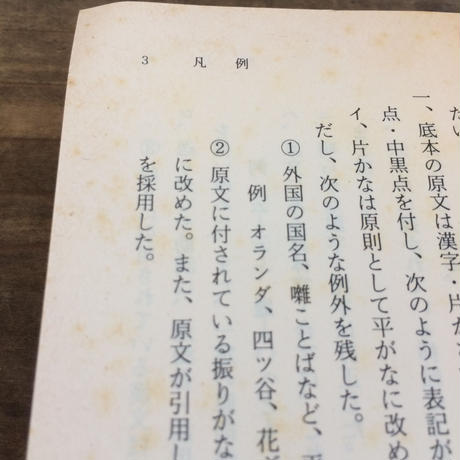 3 凡例
たい
一、底本の原文は漢字・片か
点・中黒点を付し、次のように表記が
イ、片かなは原則として平がなに改め
だし、次のような例外を残した。
① 外国の国名、囃ことばなど、
例 オランダ、四ツ谷、花
② 原文に付されている振りがな
に改めた。また、原文が引用し
を採用した。